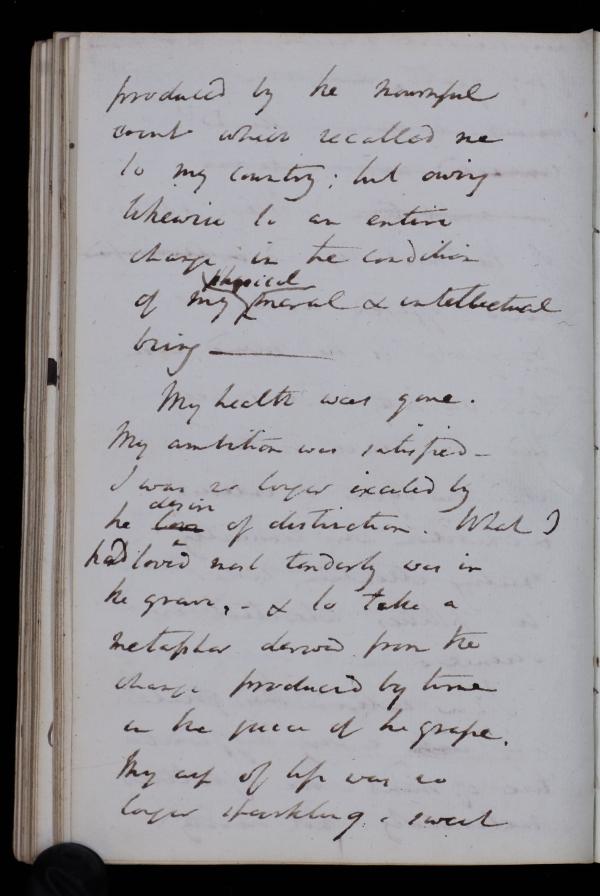 produced by the mournful
event which recalled me
to my country; but owing
likewise to an entire
change in the condition
physical
of my moral & intellectual
being ———
My health was gone.
My ambition was satisfied –
I was no longer excited by
desire
the love of distinction. What I
had loved most tenderly was in
the grave, – & to take a
metaphor derived from the
change produced by time
in the juice of the grape.
My cup of life was no
longer sparkling, sweet